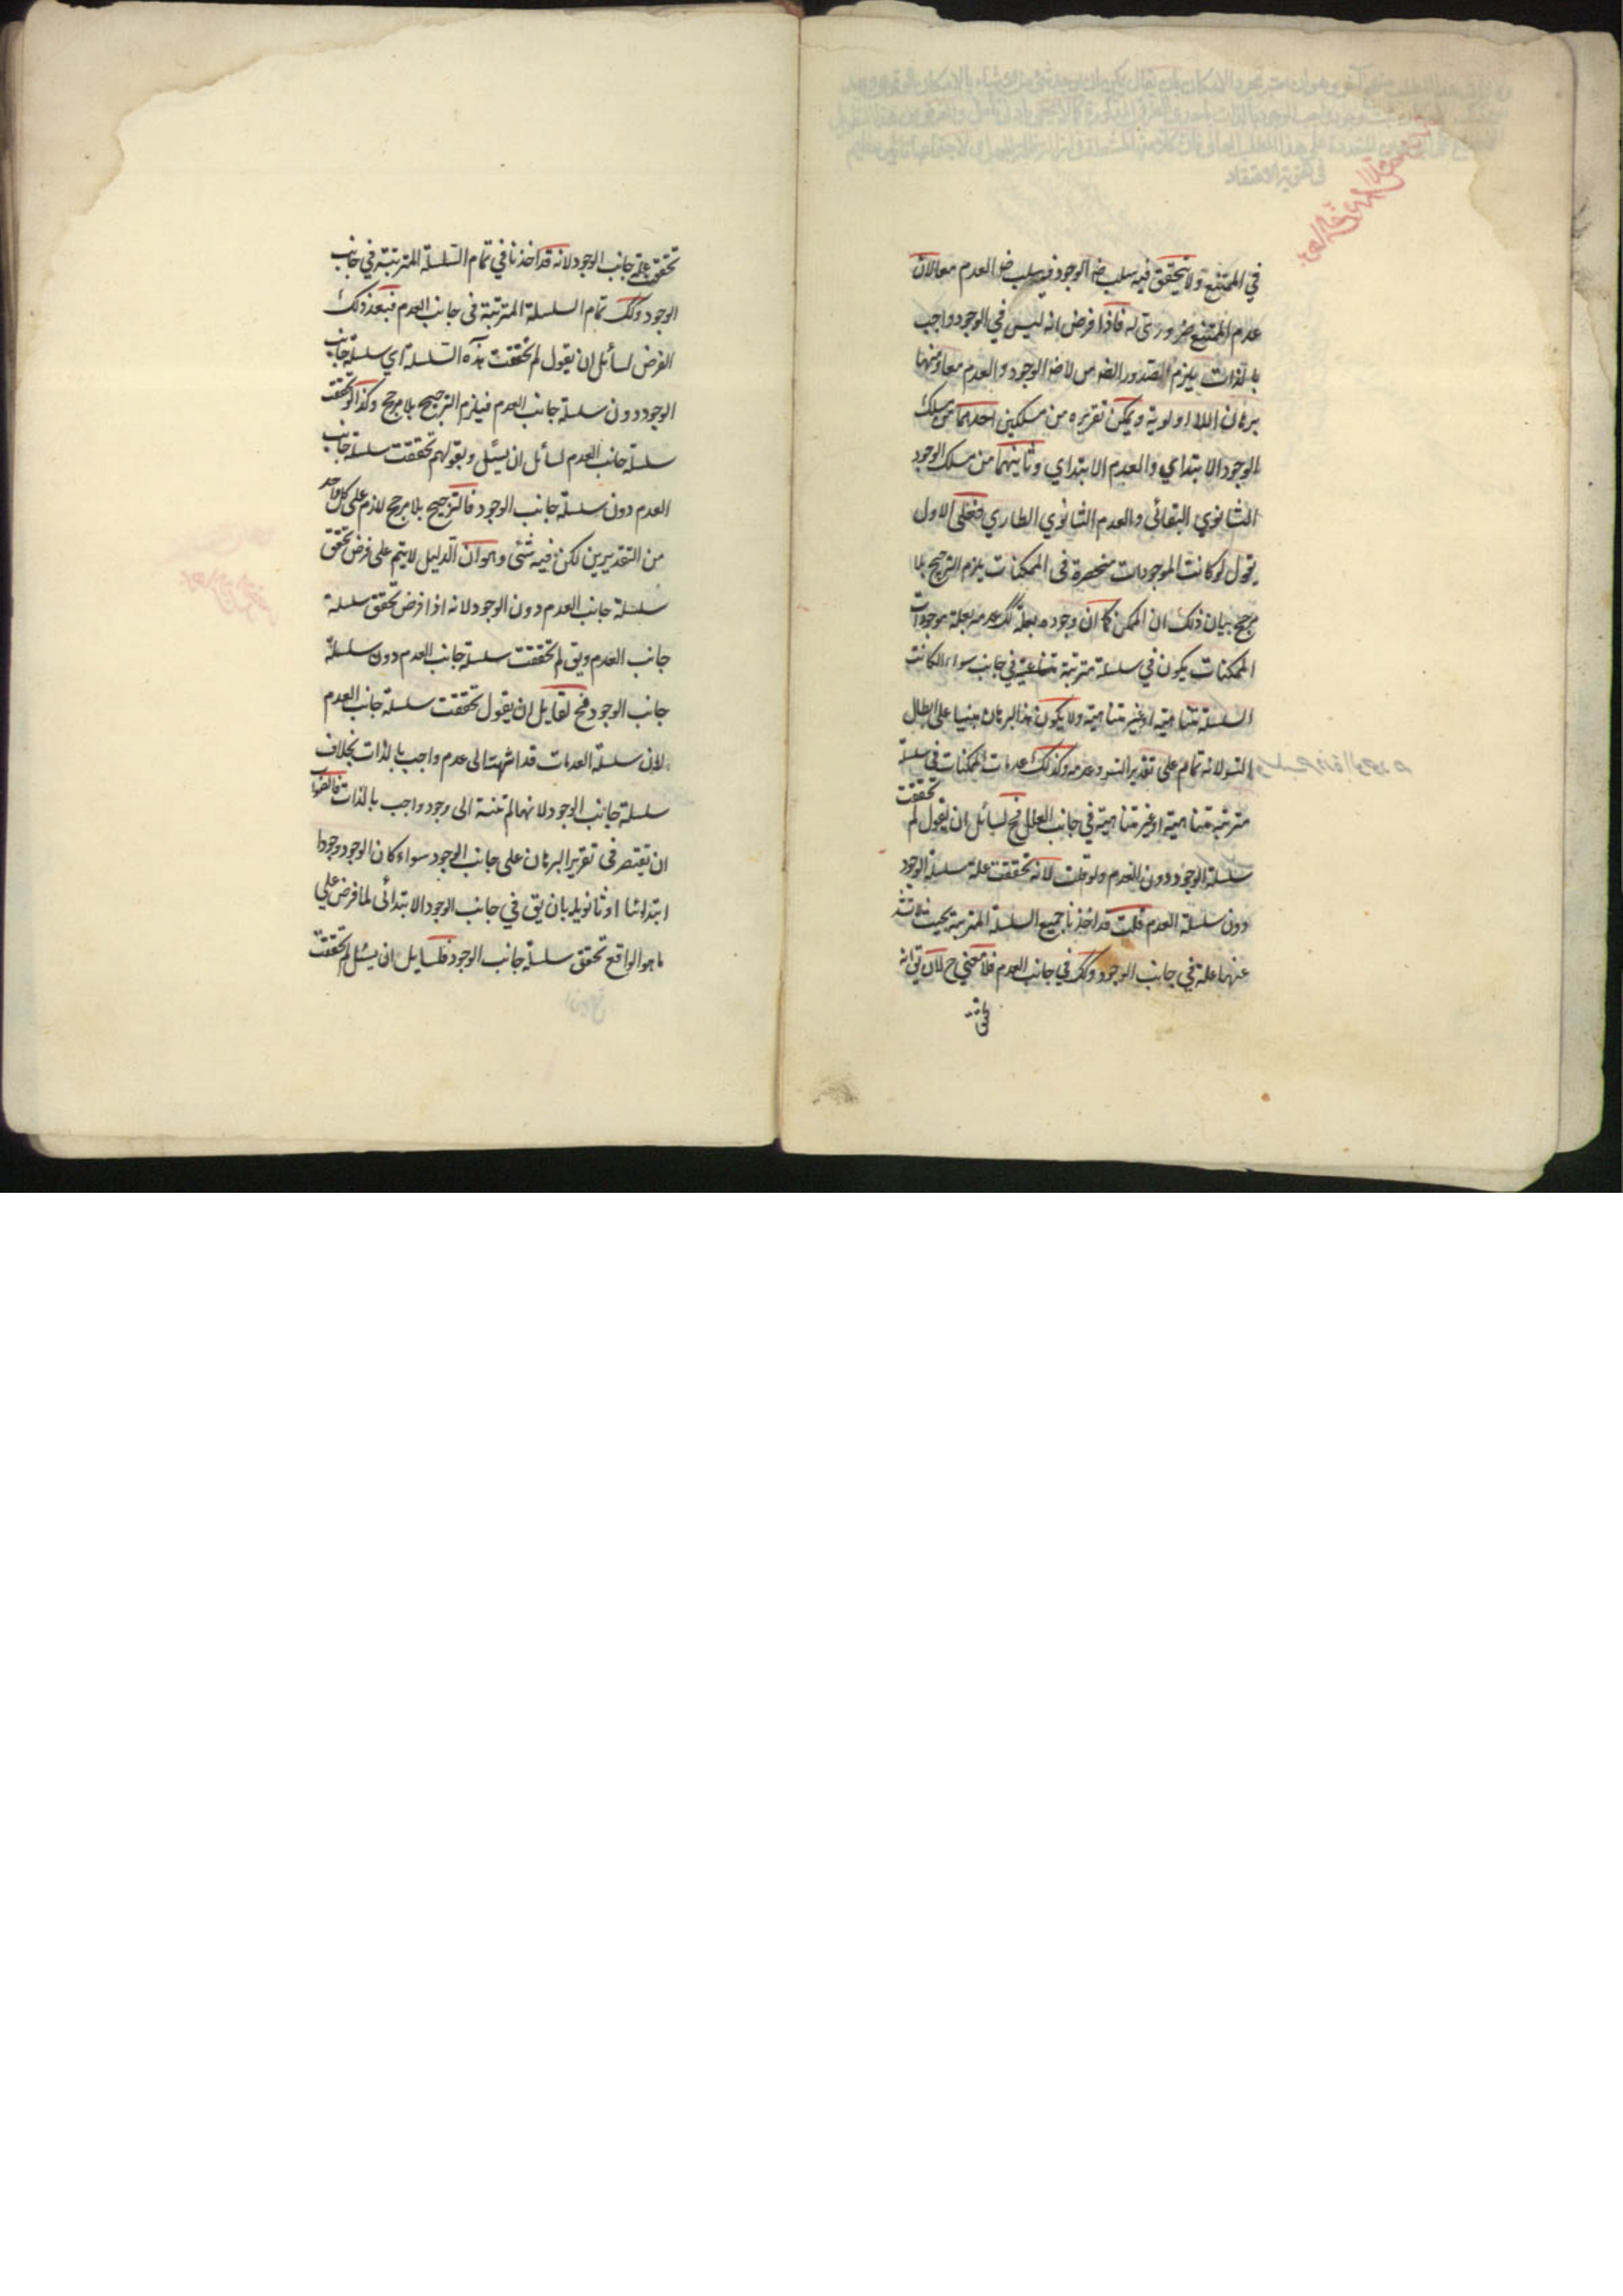 في الممتنع ولا يتحقق فيه سلب ضر الوجود في سلب ضر العدم معا لان
عدم الممتنع ضروري له فاذا فرض انه ليس في الوجود واجب
بالذات يلزم الضر لا ضر الوجود والعدم معا ومنها
برهان اللا اولوية ويمكن تقريره من مسلكين احدهما من مسلك
الوجود الابتدائي والعدم الابتداي وثانيهما من مسلك الوجود
الثانوي البقائي والعدم الثانوي الطاري فعلى الاول
يقول لو كانت الموجودات منحصرة في الممكنات يلزم الترجيح بلا
مرجح بيان ذلك ان الممكن كما ان وجوده بعلة كك عدمه بعلة فموجودات
الممكنات يكون في سلسلة مترتبة في جانب سواء اكانت
السلسلة متناهية او غير متناهية ولا يكون هذا البرهان مبنيا على ابطال
التسو لانه تمام على تقدير التسو وعدمه وكذلك عدمات الممكنات في سلسلة
مترتبة متناهية او غير متناهية في جانب العلل فح لسائل ان يقول لم تحققت
سلسلة الوجود دون العدم ولو قلت لانه تحققت علة سلسلة الوجود
دون سلسلة العدم قلت قد اخذنا جميع السلسلة المترتبة بحيث لا يشذ
عنها علة في جانب الوجود وكك في جانب العدم فلا معنى ح لان يق انه
تحقق
تحقق علة جانب الوجود لانه قد اخذنا في تمام السلسلة المترتبة في جانب
الوجود وكك تمام السلسلة المترتبة في جانب العدم فبعد ذلك
الفرض لسائل ان يقول لم تحققت هذه السلسلة اي سلسلة جانب
الوجود دون سلسلة جانب العدم فيلزم الترجيح بلا مرجح وكذا لو تحققت
سلسلة جانب العدم لسائل ان يسئل وبقو لم تحققت سلسلة جانب
العدم دون سلسلة جانب الوجود فالترجيح بلا مرجح لازم على كل واحد
من التقديرين لكن فيه شئى وهو ان الدليل لا يتم على فرض تحقق
سلسلة جانب العدم دون الوجود لانه اذا فرض تحقق سلسلة
جانب العدم ويق لم تحققت سلسلة جانب العدم دون سلسلة
جانب الوجود فح لقايل ان يقول تحققت سلسلة جانب العدم
لان سلسلة العدمات قد انتهت الى عدم واجب بالذات بخلاف
سلسلة جانب الوجود لانها لم تنته الى وجود واجب بالذات فالصواب
ان يقتصر في تقرير البرهان على جانب الوجود سواء كان الوجود وجودا
ابتدائيا او ثانويا بان يق في جانب الوجود الابتدائى لما فرض على
ما هو الواقع تحقق سلسلة جانب الوجود فلسايل ان يسئل لم تحققت